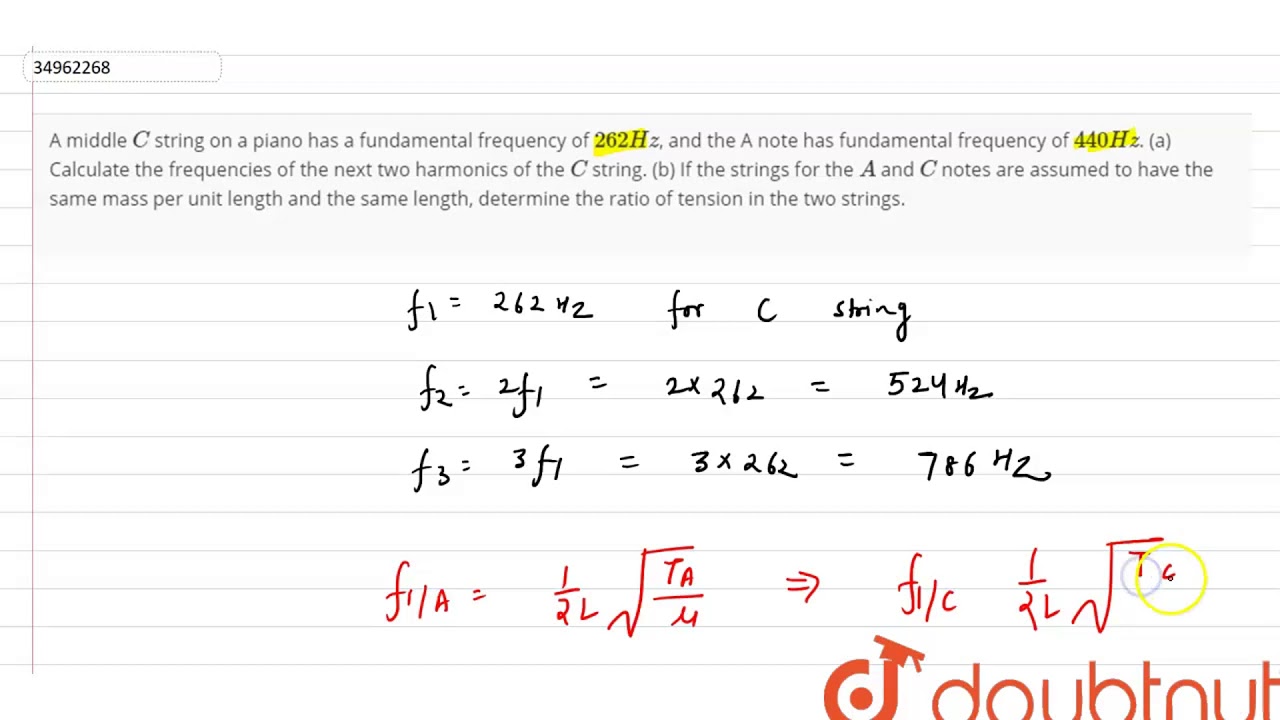 34962268
A middle C string on a piano has a fundamental frequency of 262Hz, and the A note has fundamental frequency of 440Hz. (a)
Calculate the frequencies of the next two harmonics of the C string. (b) If the strings for the A and C notes are assumed to have the
same mass per unit length and the same length, determine the ratio of tension in the two strings.
f1 = 262 Hz for C string
f2 = 2f1 = 2×262 = 524 Hz
f3 = 3f1 = 3×262 = 786 Hz
f1/A = 1/2L √TA/μ ⇒ f1/C 1/2L √TC
doubtnut